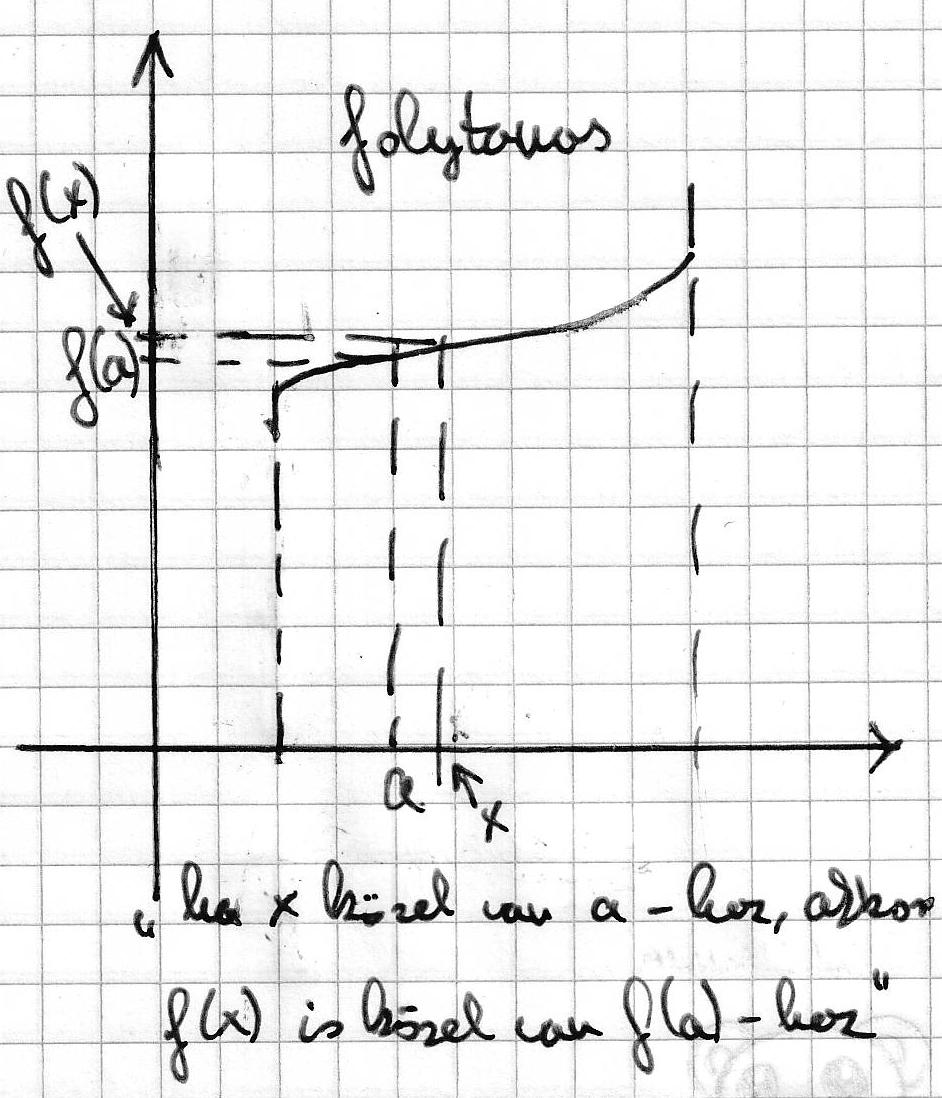 folytonos
f(x)
f(a)
a
x
„ ha x közel van a - hoz, akkor
f(x) is közel van f(a) - hoz"